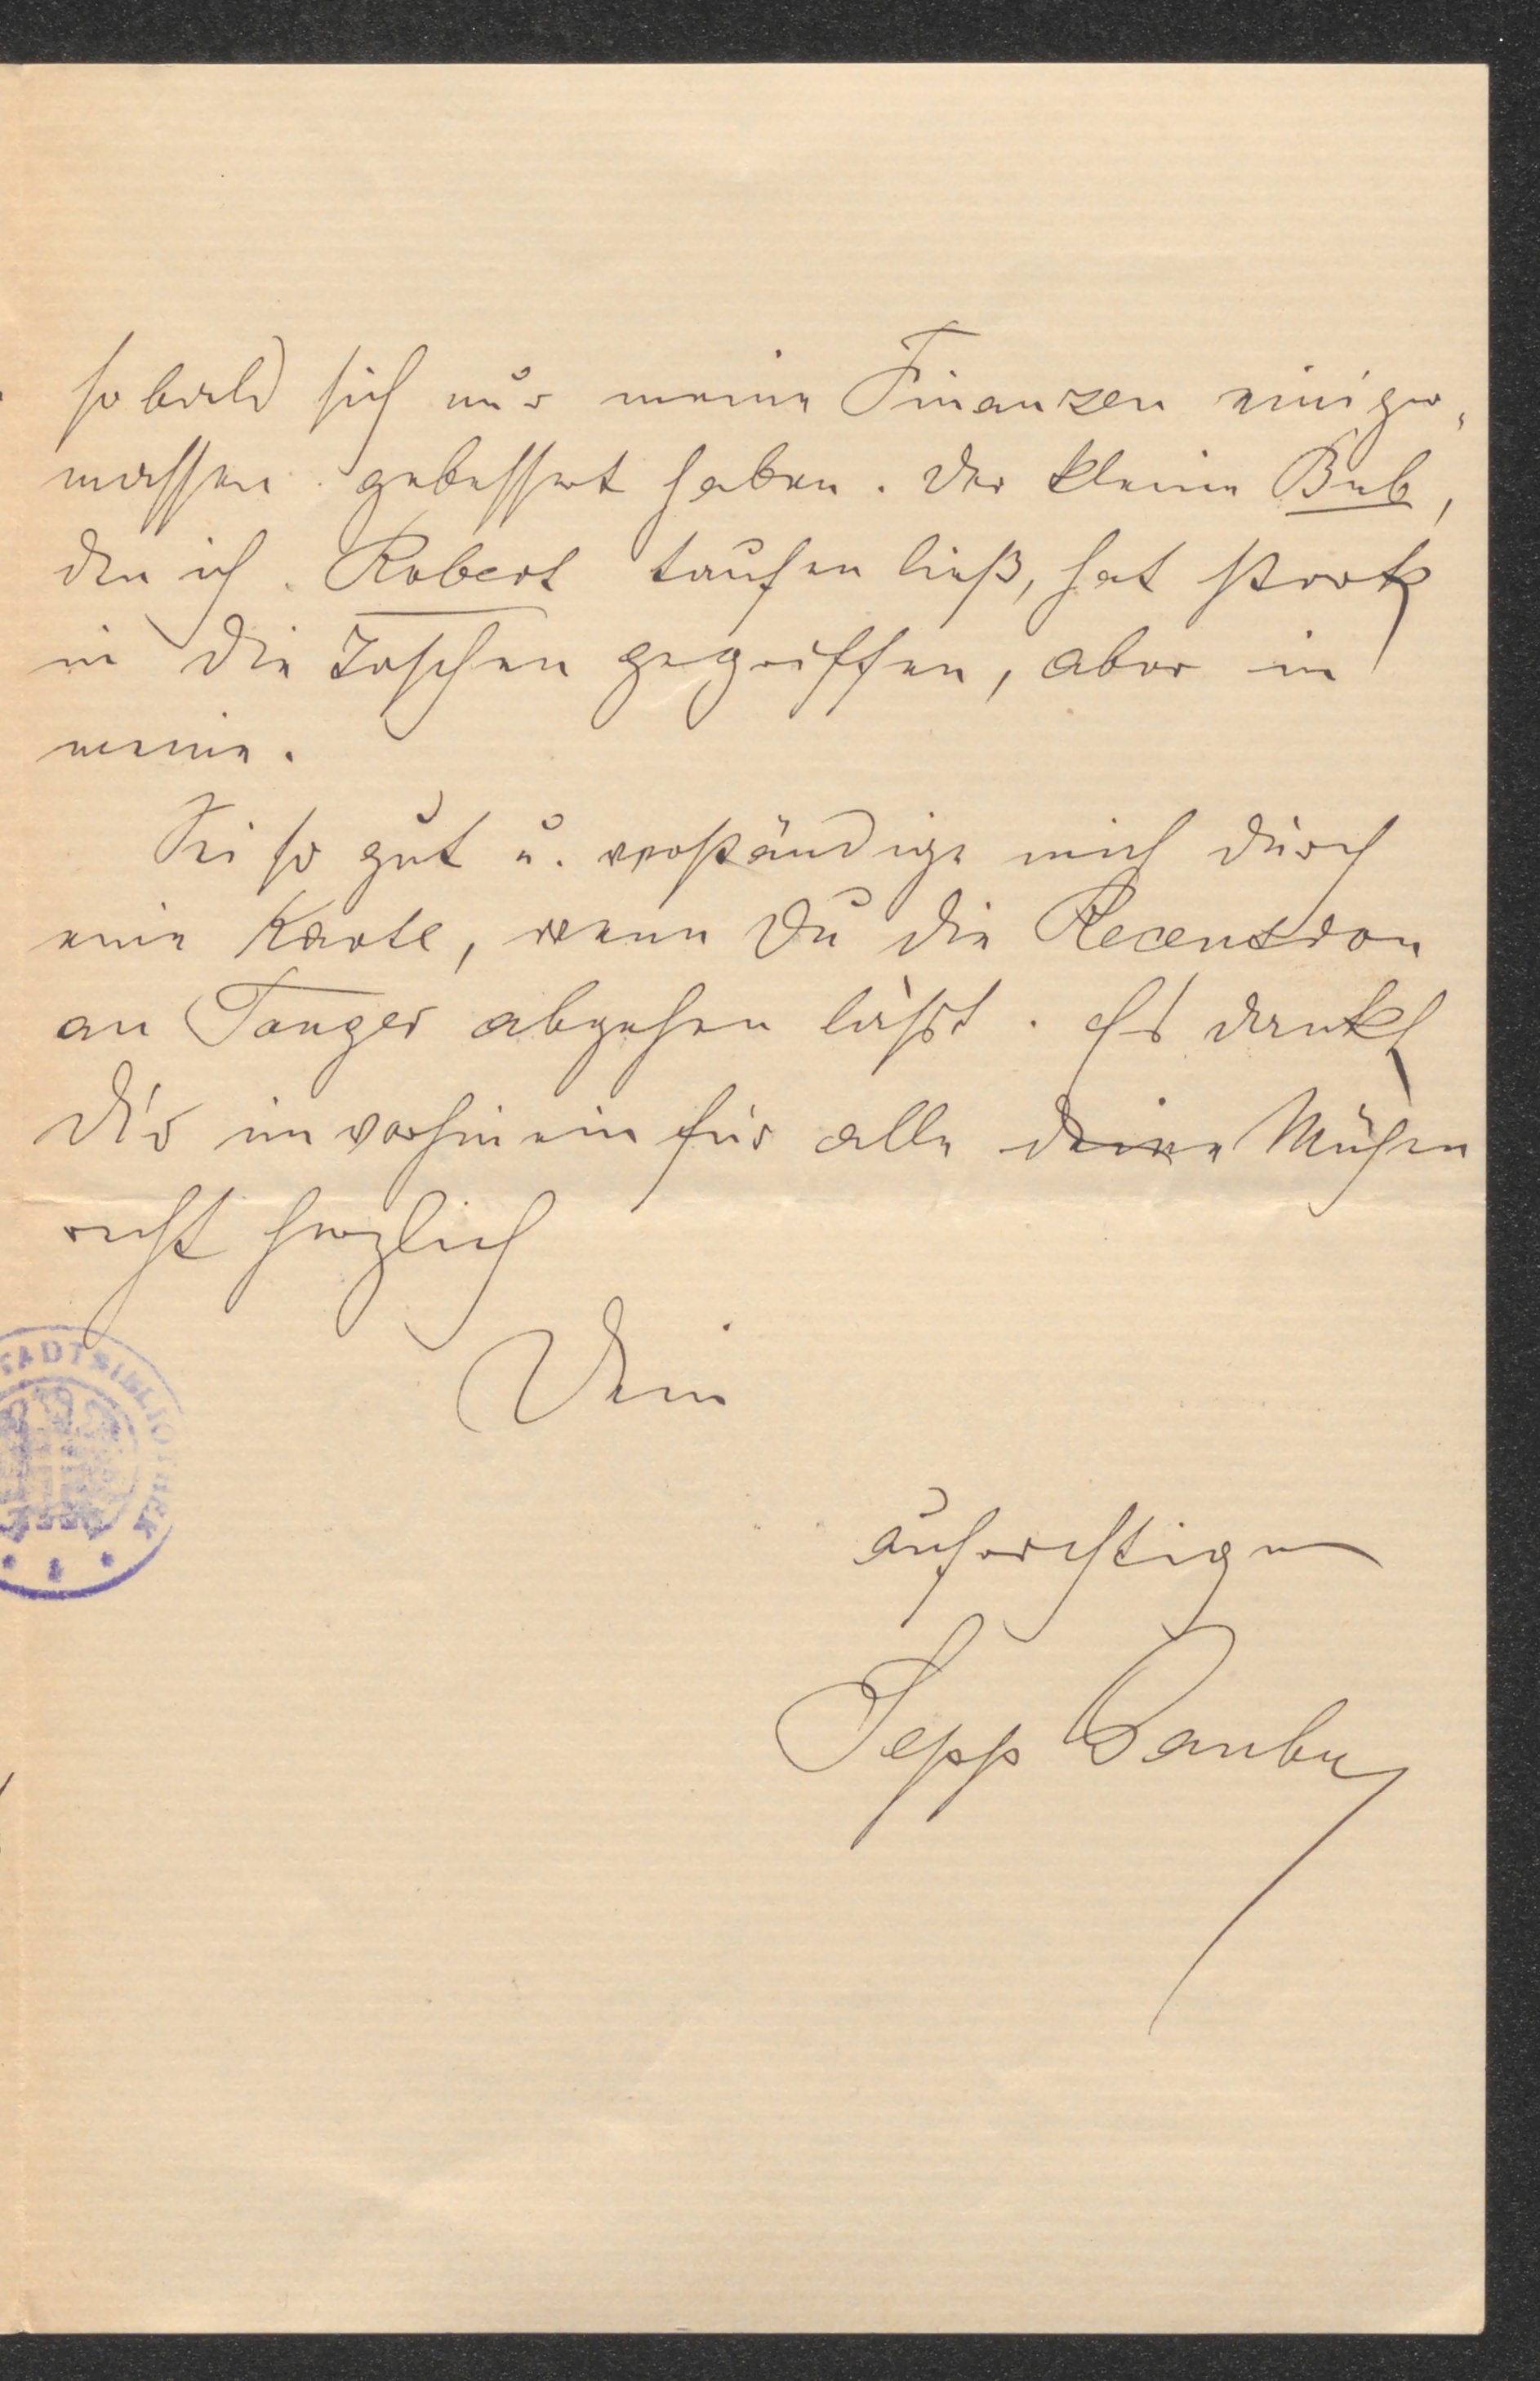 sobald sich nur meine Finanzen einiger-
massen gebessert haben. Der kleine Bub,
den ich Robert taufen ließ, hat stark
in die Taschen gegriffen, aber in
meine.
Sei so gut u. verständige mich durch
eine Karte, wenn Du die Recension
an Tanger abgehen läßt. Es dankt
Dir im vorhinein für alle deine Mühen
recht herzlich
Dein
aufrichtiger
Sepp
STADTBIBLIOTHEK